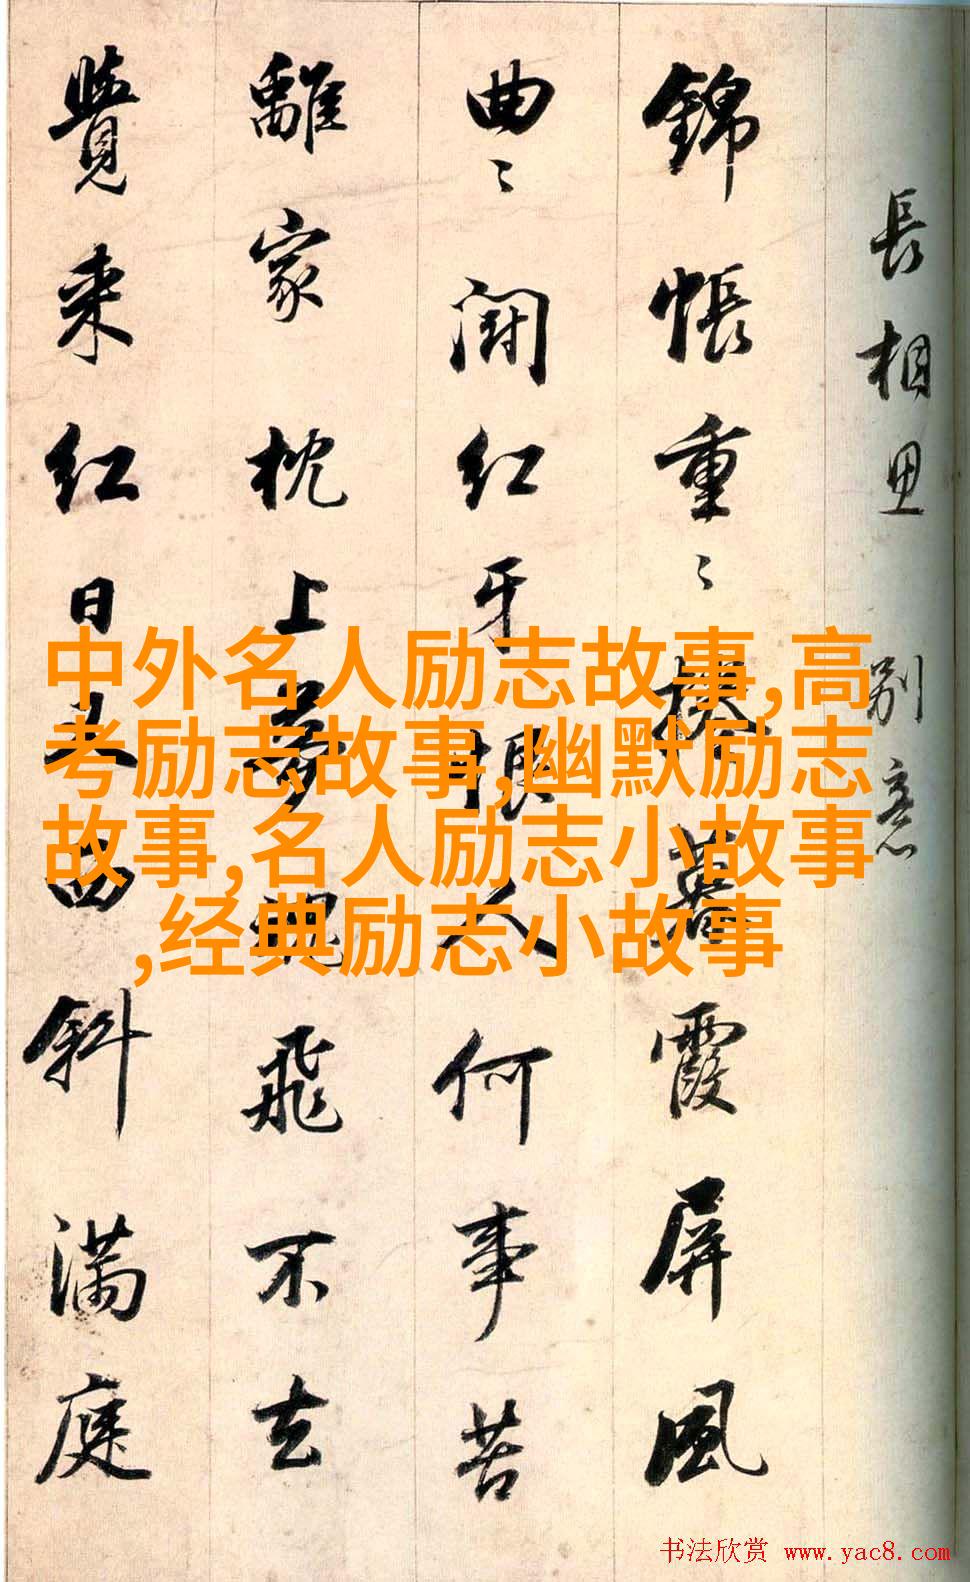 長相思 別意
錦帳重〻捲暮霞屏風
曲〻鬪紅牙恨人何事苦
離家枕上夢魂飛不去
覺来紅日又西斜滿庭
中外名人励志故事,高
考励志故事,幽默励志
故事,名人励志小故事
,经典励志小故事
书法欣赏 www.yac8.com